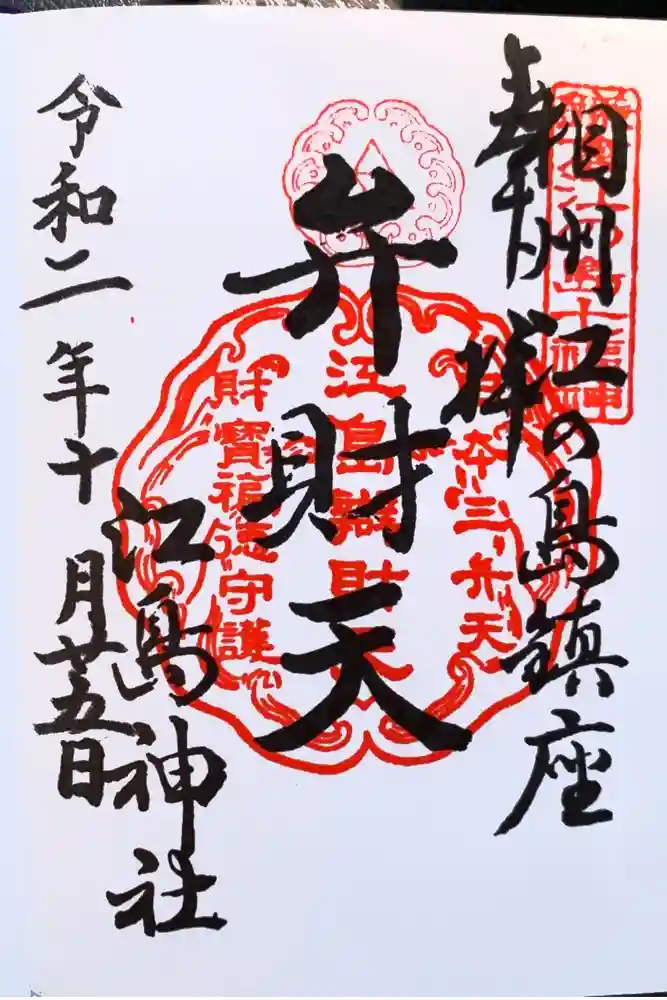 相州江の島鎮座
奉拝
弁財天
江島神社
令和二年十月廿五日
日本三弁天
江島辨財天
財寶福徳守護